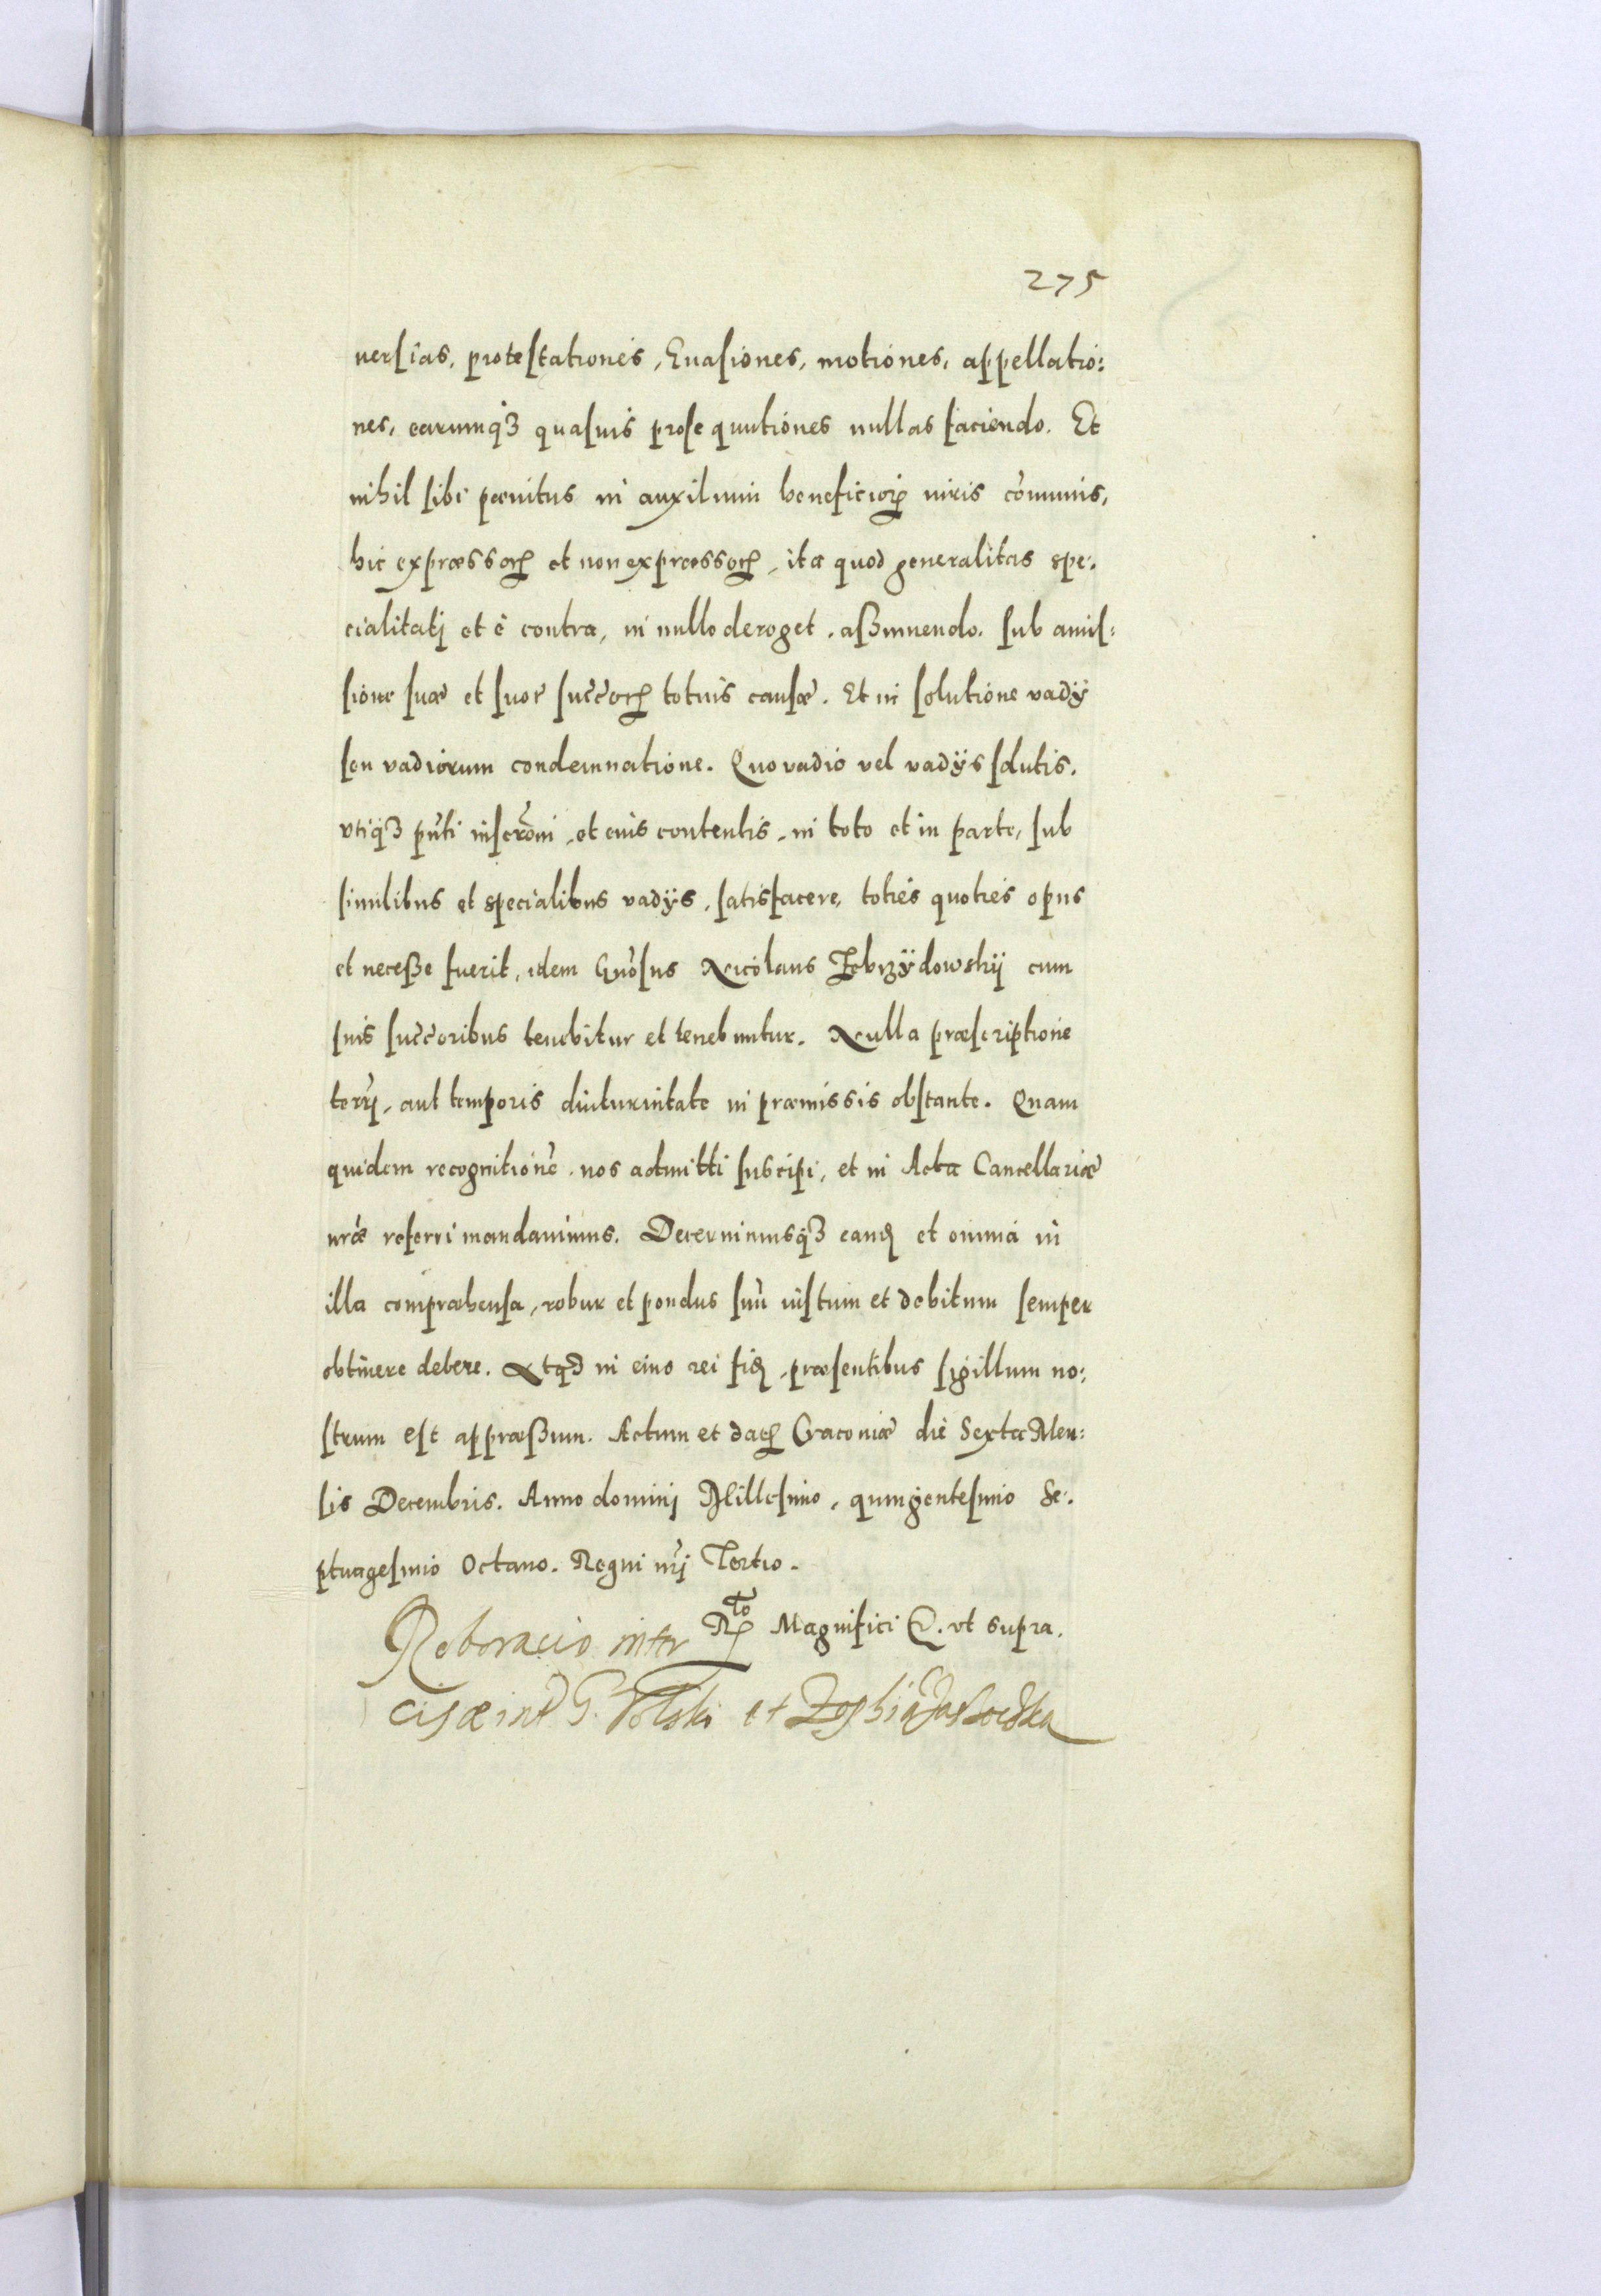 275
uersias, protestationes, Euasiones, motiones, appellatio:
nes, earumq3 quasuis prosequutiones nullas faciendo. Et
nihil sibi pœnitus in auxilium beneficioꝝ iuris cõmunis,
hic expræssoꝝ et non expræssoꝝ, ita quod generalitas spe:
cialitatj et è contra, in nullo deroget, aßumendo. sub amis:
sione suæ et suor succ̃oꝝ totius causæ. Et in solutione vadÿ
seu vadiorum condemnatione. Quo vadio vel vadÿs solutis.
vtiq3 pñti inscrõni, et eius contentis, in toto et in parte, sub
similibus et specialibus vadÿs, satisfacere, toties quoties opus
et neceße fuerit, idem Gñosus Nicolaus Zebrzÿdowskij cum
suis succ̃oribus tenebitur et tenebuntur. Nulla præscriptione
terrj, aut temporis diuturnitate in præmissis obstante. Quam
quidem recognitionẽ nos admitti suscipi, et in Acta Cancellariæ
nr̃æ referri mandauimus. Decernimusq3 eanđ et omnia in
illa compræhensa, robur et pondus suũ iustum et debitum semper
obtinere debere. In cuius rei fiđ, præsentibus sigillum no:
strum est appræßum. Actum et datꝝ Cracouiæ die Sexta Men:
sis Decembris. Anno dominj Millesimo, quingentesimo Se:
ptuagesimo Octauo. Regni nr̃j Tertio.
Rꝑto Magnifici &. vt supra.
Roboracio inter
cisæ int G. Polski et Zophia